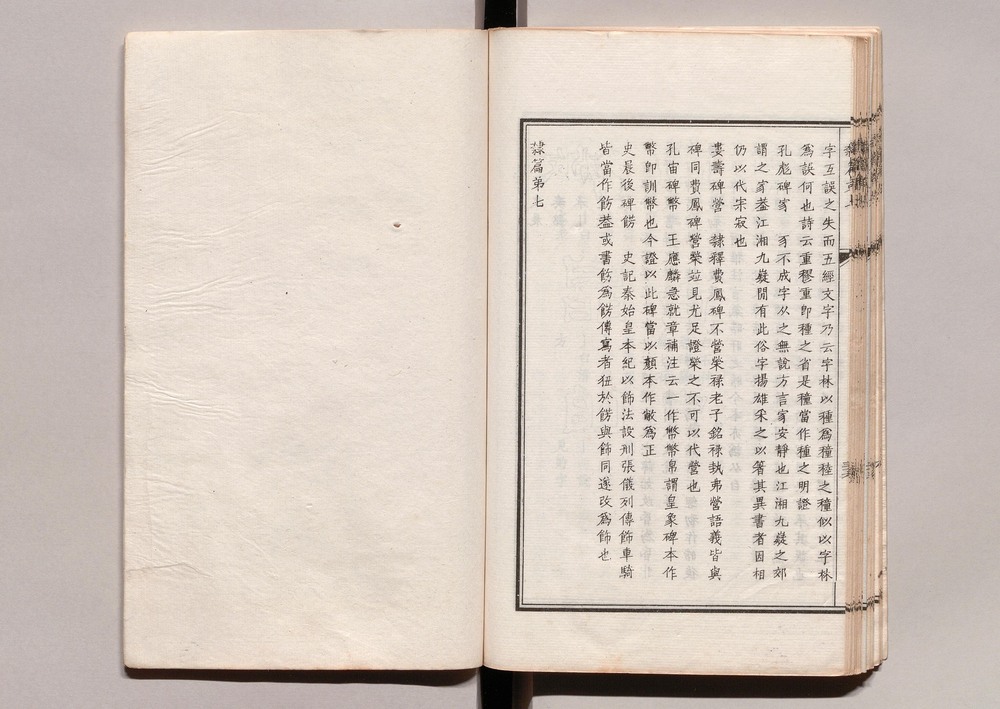 字互誤之失而五經文字乃云字林以種為穜稑之穜似以字林
為誤何也詩云重穋重即種之省是穜當作種之明證
孔彪碑㝠 㝠不成字从之無說方言家安靜也江湘九嶷之郊
謂之㝠葢江湘九嶷閒有此俗字揚雄采之以箸其異書者因相
仍以代宋寂也
婁壽碑營 隸釋費鳳碑不營榮祿老子銘祿埶弗營語義皆與
碑同費鳳碑營榮竝見尤足證榮之不可以代營也
孔宙碑幣 王應麟急就章補注云一作幣幣帛謂皇象碑本作
幣即訓幣也今證以此碑當以顏本作敝為正
史晨後碑餝 史記秦始皇本紀以飾法設刑張儀列傳飾車騎
皆當作飭葢或書飭為餝傳寫者狃於餝與飾同遂改為飾也
隸篇第七